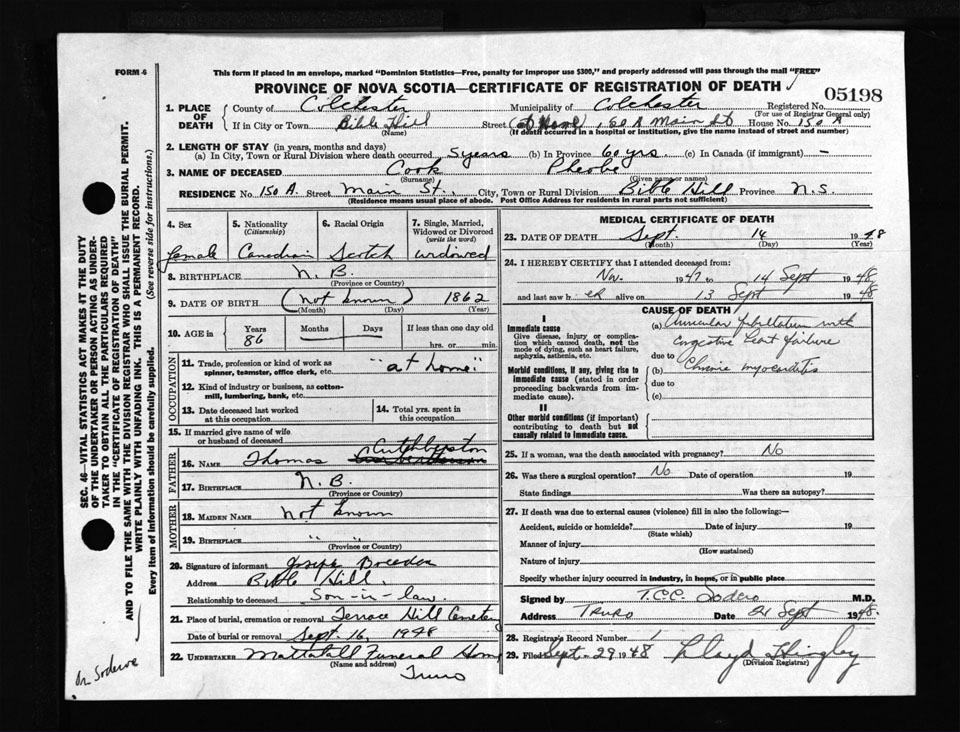 FORM 6
This form if placed in an envelope, marked "Dominion Statistics—Free, penalty for improper use $300," and properly addressed will pass through the mail "FREE"
PROVINCE OF NOVA SCOTIA—CERTIFICATE OF REGISTRATION OF DEATH
05198
1. PLACE OF DEATH
County of Colchester Municipality of Colchester Registered No.
(For use of Registrar General only)
If in City or Town Bible Hill Street (at Home), 60 A Main St House No. 150 A
(Name) (If death occurred in a hospital or institution, give the name instead of street and number)
2. LENGTH OF STAY (in years, months and days)
(a) In City, Town or Rural Division where death occurred 5 years (b) In Province 60 yrs. (c) In Canada (if immigrant) —
3. NAME OF DECEASED Cook Pheobe
(Surname) (Given name or names)
RESIDENCE No. 150 A. Street Main St. City, Town or Rural Division Bible Hill Province N.S.
(Residence means usual place of abode. Post Office Address for residents in rural parts not sufficient)
4. Sex
female
5. Nationality
(Citizenship)
Canadian
6. Racial Origin
Scotch
7. Single, Married,
Widowed or Divorced
(write the word)
widowed
8. BIRTHPLACE N. B.
(Province or Country)
9. DATE OF BIRTH (not known) 1862
(Month) (Day) (Year)
10. AGE in
Years
86
Months
Days
If less than one day old
hrs. or min.
OCCUPATION
11. Trade, profession or kind of work as
spinner, teamster, office clerk, etc. "at home"
12. Kind of industry or business, as cotton-
mill, lumbering, bank, etc.
13. Date deceased last worked
at this occupation
14. Total yrs. spent in
this occupation
15. If married give name of wife
or husband of deceased
FATHER
16. NAME Thomas Cuthbertson
17. BIRTHPLACE N. B.
(Province or Country)
MOTHER
18. MAIDEN NAME not known
19. BIRTHPLACE " "
(Province or Country)
20. Signature of informant Joseph
Address Bible Hill.
Relationship to deceased Son-in-law.
21. Place of burial, cremation or removal Terrace Hill Cemetery
Date of burial or removal Sept. 16, 1948
22. UNDERTAKER Mattatall Funeral Home
(Name and address)
Truro
MEDICAL CERTIFICATE OF DEATH
23. DATE OF DEATH Sept. 14 1948
(Month) (Day) (Year)
24. I HEREBY CERTIFY that I attended deceased from:
Nov. 1947 to 14 Sept 1948
and last saw her alive on 13 Sept 1948
CAUSE OF DEATH
I
Immediate cause
Give disease, injury or complica-
tion which caused death, not the
mode of dying, such as heart failure,
asphyxia, asthenia, etc.
Morbid conditions, if any, giving rise to
immediate cause (stated in order
proceeding backwards from im-
mediate cause).
II
Other morbid conditions (if important)
contributing to death but not
causally related to immediate cause.
(a) Auricular fibrillation with
Congestive heart failure
due to
(b) Chronic myocarditis
due to
(c)
25. If a woman, was the death associated with pregnancy? No
26. Was there a surgical operation? No Date of operation 19
State findings Was there an autopsy?
27. If death was due to external causes (violence) fill in also the following:—
Accident, suicide or homicide? Date of injury 19
(State which)
Manner of injury
(How sustained)
Nature of injury
Specify whether injury occurred in industry, in home, or in public place
Signed by T.C.C. Sodero M.D.
Address Truro Date 21 Sept 1948.
28. Registrar's Record Number 1
29. Filed Sept - 29 1948 Lloyd Hingley
(Division Registrar)
SEC. 46—VITAL STATISTICS ACT MAKES IT THE DUTY
OF THE UNDERTAKER OR PERSON ACTING AS UNDER-
TAKER TO OBTAIN ALL THE PARTICULARS REQUIRED
IN THE "CERTIFICATE OF REGISTRATION OF DEATH"
AND TO FILE THE SAME WITH THE DIVISION REGISTRAR WHO SHALL ISSUE THE BURIAL PERMIT.
WRITE PLAINLY WITH UNFADING INK. THIS IS A PERMANENT RECORD.
Every item of information should be carefully supplied. (See reverse side for instructions.)